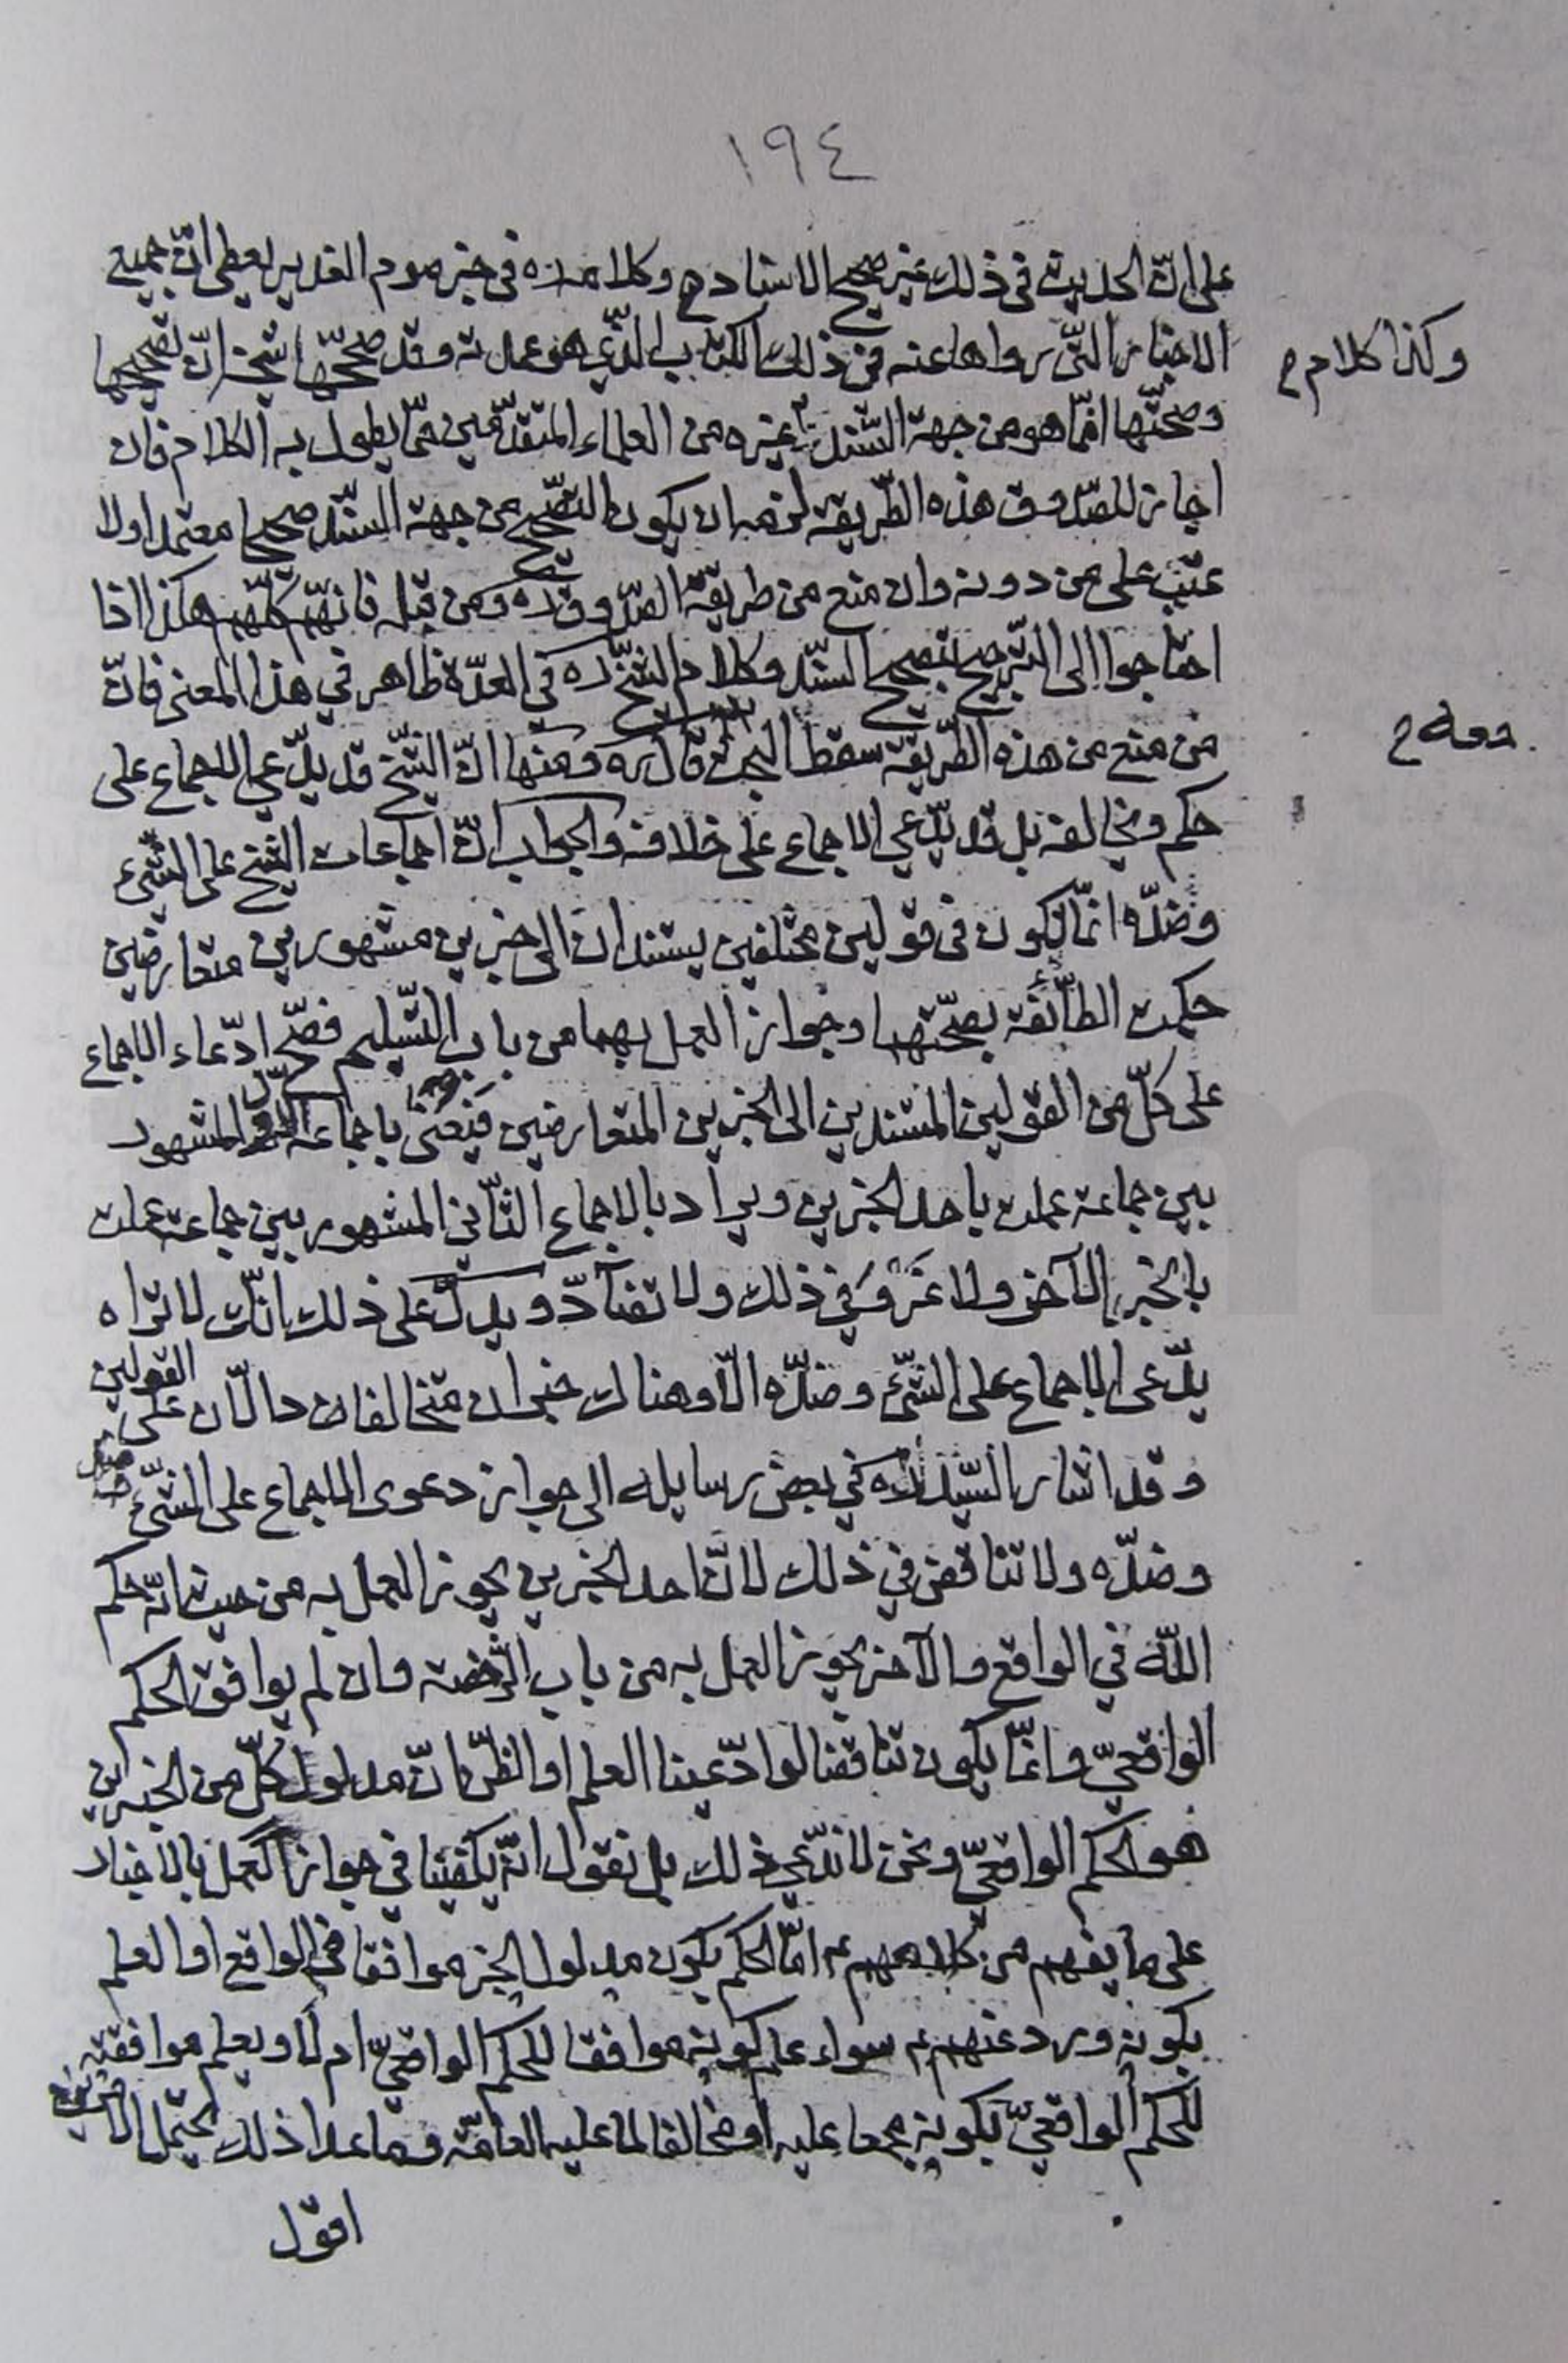 ١٩٤
على انّ الحديث في ذلك غير صحيح الاسناد وكلامه ره في خبر موم الغدير يعطي انّ جميع
الاخبار التّي رواها عنه في ذلك الكتاب الّذي هو عمل به وقد صححّها شيخه انّ تصحيحها
وكذا كلام
وصحّتها انّما هو من جهة السّند غيره من العلماء المتقدّمين ممّا يطول به الكلام فان
اجاز للصّدوق هذه الطّريقه لزمه ان يكون التصّحيح من جهة السّند صحيحا معتمدا ولا
عتب على من دونه وان منع من طريقة الصّدوق ره ومن قبله فانهّم كلّهم هكذا اذا
احتاجوا الى التّرجيح بتصحيح السّند وكلام الشّيخ ره في العدّة ظاهر في هذا المعنى فانّ
من منع من هذه الطّريقه سقط البحث قال ره ومنها انّ الشّيخ قد يدّعي الاجماع على
حكم ويخالفه بل قد يدّعي الاجماع على خلافه والجواب انّ اجماعات الشّيخ على الشّيء
وضدّه انمّا تكون في قولين مختلفين يستندان الى خبرين مشهورين متعارضين
حكمت الطاّئفة بصحّتهما وجواز العمل بهما من باب التّسليم فصّح ادّعاء الاجماع
على كلّ من القولين المستندين الى الخبرين المتعارضين فيعنى باجماعه الاول المشهور
بين جماعة عملت باحد الخبرين ويراد بالاجماع الثّاني المشهور بين جماعة عملت
بالخبر الآخر ولا غَروَ في ذلك ولا تضآدّ ويدلّ على ذلك انّك لا تراه
يدّعى الاجماع على الشّيء وضدّه الّا وهناك خبران متخالفان دالّان على القولين
وقد اشار السّيد ره في بعض رسايله الى جواز دعوى الاجماع على الشّيء
وضدّه ولا تناقض في ذلك لانّ احد الخبرين يجوز العمل به من حيث انّه حكم
اللّه في الواقع والآخر يجوز العمل به من باب الرّخصة وان لم يوافق الحكم
الواقعيّ وانمّا يكون تناقضا لو ادّعينا العلم او الظّن بانّ مدلول كلّ من الخبرين
هو الحكم الواقعيّ ونحن لا ندّعي ذلك بل نقول انّه يكفينا في جواز العمل بالاخبار
على ما يفهم من كلامهم ع امّا الحكم بكون مدلول الخبر موافقا في الواقع او العلم
بكونه ورد عنهم ع سواء علم كونه موافقا للحكم الواقعيّ ام لا ويعلم موافقته
للحكم الواقعيّ بكونه مجمعا عليه او مخالفا لما عليه العامّة وما عدا ذلك يحتمل
اقول